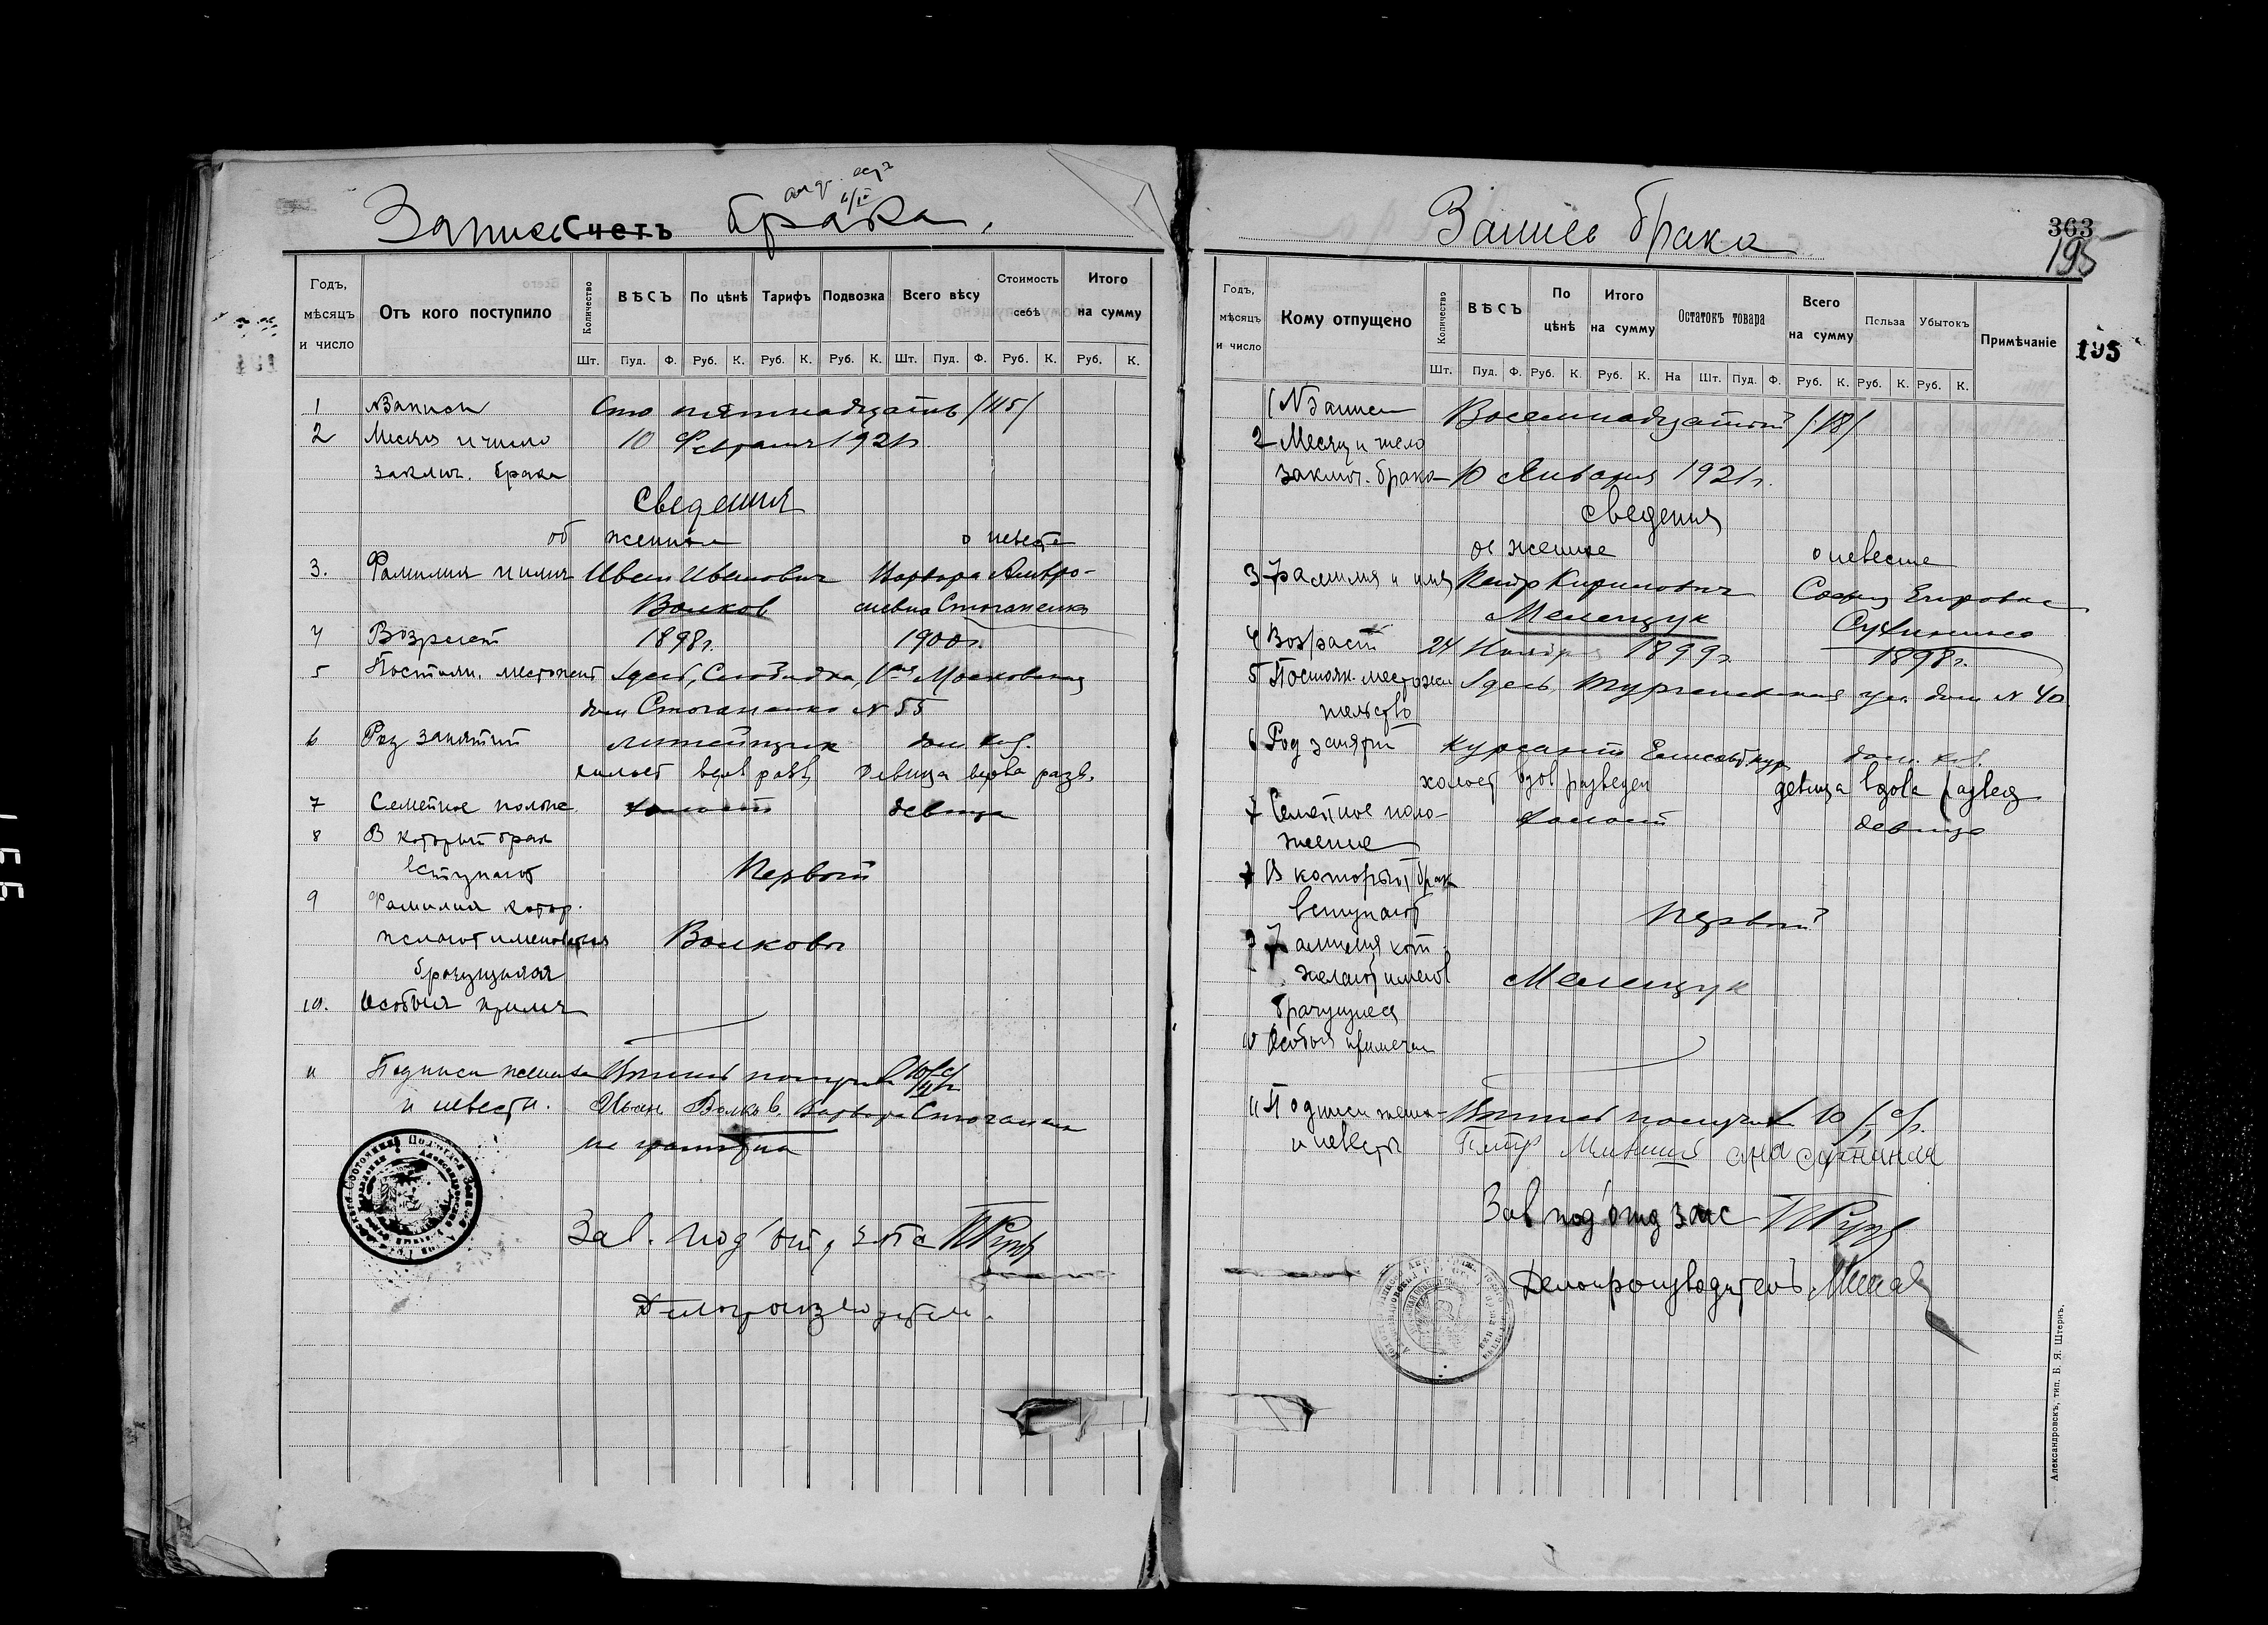 Запись Счетъ брака.
Годъ, мѣсяцъ и число
Отъ кого поступило
Количество
ВѢСЪ
По цѣнѣ
Тарифъ
Подвозка
Всего вѣсу
Стоимость себѣ
Итого на сумму
Шт. Пуд. Ф. Руб. К. Руб. К. Руб. К. Шт. Пуд. Ф. Руб. К. Руб. К.
1 №Записи Сто пятнадцать /115/
2 Месяц и число 10 Февраля 1921г.
заключ. брака
Сведения
об женихе о невесте
3. Фамилия и имя Иван Иванович Варвара Амвро-
Волков сиевна Стоганенко
4 Возраст 1898г. 1900г.
5 Постоян. местожит здесь, Слободка, Московская
дом Стоганенко № 55
6 Род занятий литейщик дом. хоз.
холост вдов разв девица вдова разв.
7 Семейное полож холост девица
8 В который брак
вступают Первый
9 Фамилия котор.
желают именоваться Волковы
брачущиеся
10. Особыя примеч
11 Подписи жениха
и невесты. Иван Волков. Варвара Стоганенко
не грамотна
Зав. под'отд. загса
Делопроизводитель.
Запись брака
363
195
Годъ, мѣсяцъ и число
Кому отпущено
Количество
ВѢСЪ
По цѣнѣ
Итого на сумму
Остатокъ товара
Всего на сумму
Польза
Убытокъ
Примѣчаніе
195
Шт. Пуд. Ф. Руб. К. Руб. К. На Шт. Пуд. Ф. Руб. К. Руб. К. Руб. К.
1 №Записи Восемнадцатый /18/
2 Месяц и число
заключ. брака 10 Января 1921г.
Сведения
об женихе о невесте
3 Фамилия и имя Петр Кирилович София Егоровна
Мелещук Сухинина
4 Возраст 24 Ноября 1899г. 1898г.
5 Постоян. местожи здесь, Тургеневская ул. дом № 40
тельство
6 Род занятий курсант дом. хоз.
холост вдов разведен девица вдова развед
7 Семейное поло- холост девица
жение
В который брак
вступают первый
Фамилия кот
желают именов Мелещук
брачущиеся
10 Особыя примечан
11 Подписи жениха
и невесты Петр
Зав под'отд загс
Делопроизводитель
Александровскъ, тип. Б. Я. Штернъ.